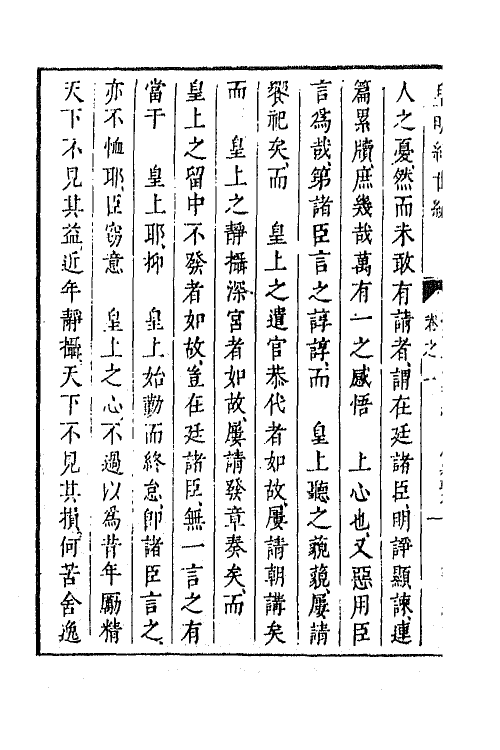 皇明經世編
卷之一
人之憂然而未敢有請者謂在廷諸臣明諍顯諫連
篇累牘庶幾哉萬有一之感悟　上心也又惡用臣
言爲哉第諸臣言之諄諄而　皇上聽之藐藐屢請
饗祀矣而　皇上之遣官恭代者如故屢請朝講矣
而　皇上之靜攝深宮者如故屢請發章奏矣而
皇上之留中不發者如故豈在廷諸臣無一言之有
當于　皇上耶抑　皇上始勤而終怠即諸臣言之
亦不恤耶臣窃意　皇上之心不過以爲昔年勵精
天下不見其益近年靜攝天下不見其損何苦舍逸